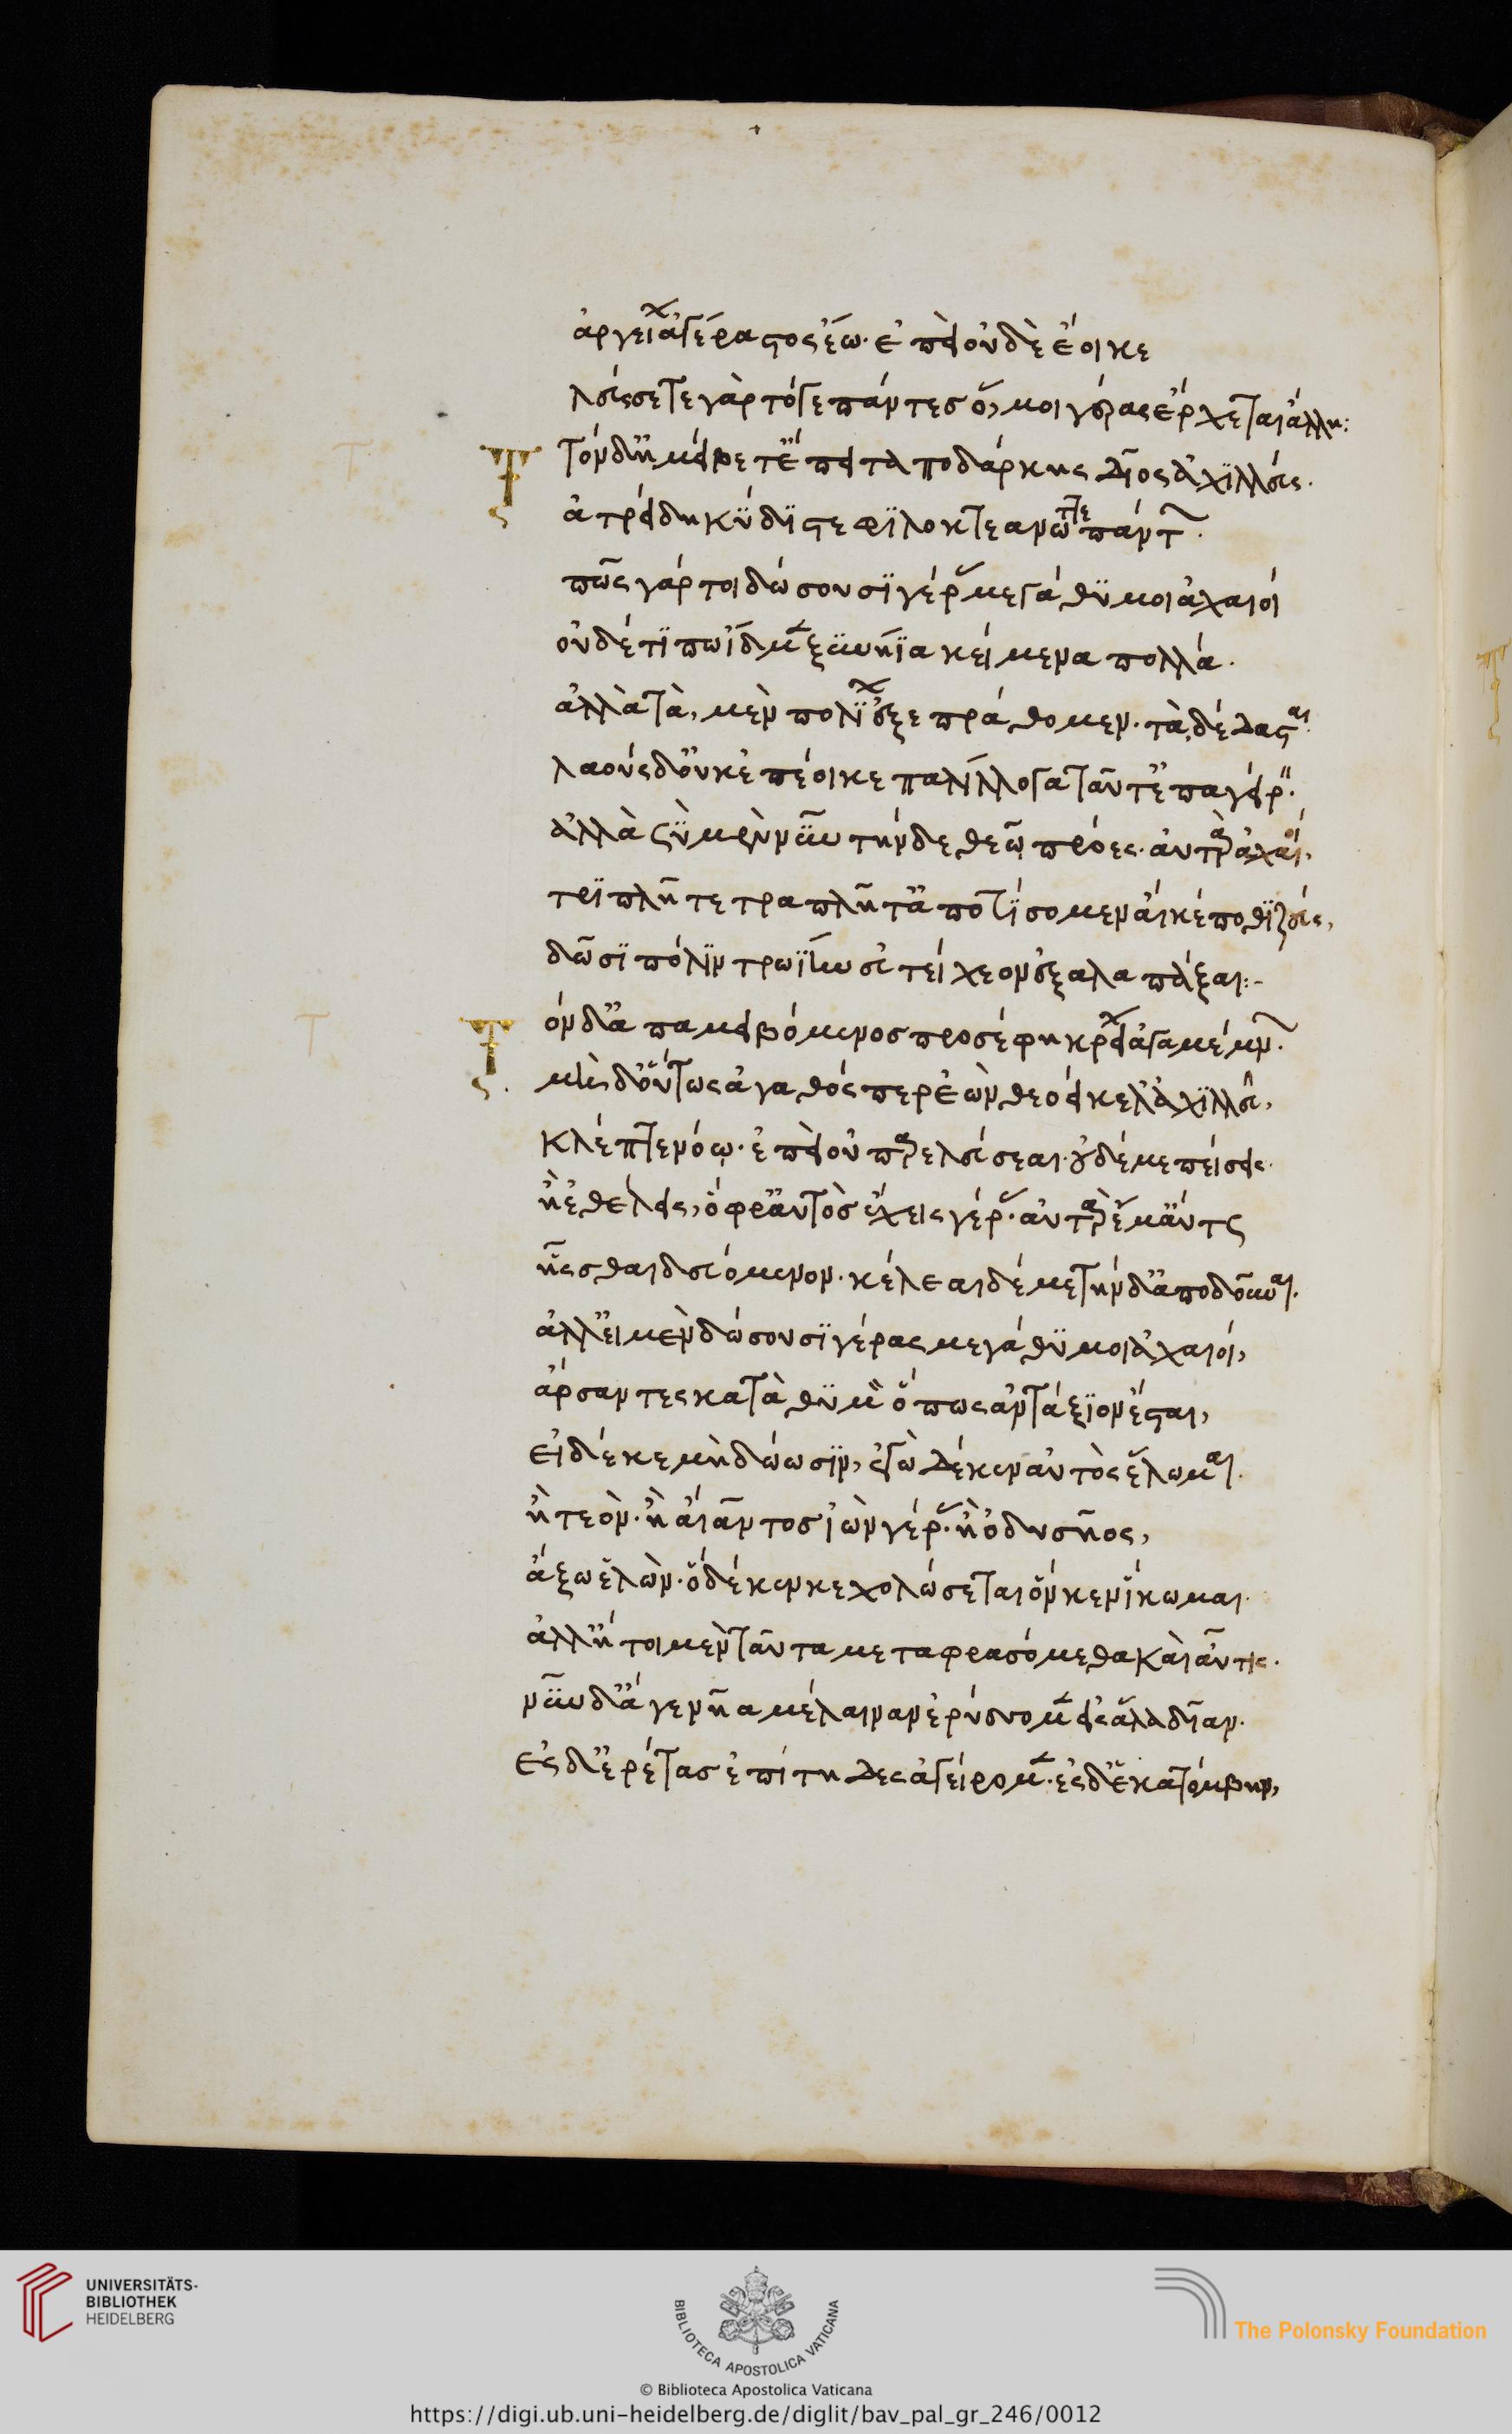 ἀργείων ἀγέραστος ἔω. ἐπεὶ οὐδὲ ἔοικε
λεύσσετε γὰρ τόγε πάντες ὅ, μοι γέρας ἔρχεται ἄλλη:
Τόνδ' ἠμείβετ' ἔπειτα ποδάρκης δῖος ἀχϊλλεύς.
ἀτρείδη κύδϊστε φϊλοκτεανώτατε πάντων.
πῶς γάρ τοι δώσουσϊ γέρας μεγάθϋμοι ἀχαιοί
οὐδέ τϊ πω ἴδμεν ξυνήϊα κείμενα πολλά.
ἀλλὰ τὰ, μὲν πολΐων ἐξεπράθομεν. τὰ, δέδασται.
λαοὺς δ' οὐκ ἐπέοικε παλίλλογα ταῦτ' ἐπαγείρειν.
ἀλλὰ σὺ μὲν νῦν τήνδε θεῶ πρόες. αὐτὰρ ἀχαιοί,
τρϊπλῆ τετραπλῆ τ' ἀποτΐσομεν αἴ κέ ποθϊ ζεύς,
δῶσϊ πόλϊν τρωΐην εὐτείχεον ἐξαλαπάξαι:-
Τόνδ' ἀπαμειβόμενος προσέφη κρείων ἀγαμέμνων.
μὴ δ' οὕτως ἀγαθός περ ἐὼν θεοείκελ' ἀχϊλλεῦ,
κλέπτε νόῳ. ἐπεὶ οὐ παρελεύσεαι. οὐδέ με πείσεις.
ἢ ἐθέλεις, ὄφρ' αὐτὸς ἔχεις γέρας. αὐτὰρ ἔμ' αὔτως
ἧσθαι δευόμενον. κέλεαι δέ με τήνδ' ἀποδοῦναι.
ἀλλ' εἰ μὲν δώσουσϊ γέρας μεγάθϋμοι ἀχαιοί,
ἄρσαντες κατὰ θϋμὸν ὅπως ἀντάξϊον ἔσται,
εἰ δέ κε μὴ δώωσϊν, ἐγὼ δέ κεν αὐτὸς ἕλωμαι.
ἢ τεὸν. ἢ αἴαντος ἰὼν γέρας. ἢ ὀδυσῆος,
ἄξω ἑλὼν. ὅ δέ κεν κεχολώσεται ὅν κεν ἵκωμαι.
ἀλλ' ἤτοι μὲν ταῦτα μεταφρασόμεθα καὶ αὖτις.
νῦν δ' ἄγε νῆα μέλαιναν ἐρύσομεν εἰς ἅλα δῖαν.
ἐς δ' ἐρέτας ἐπίτηδες ἀγείρομεν. ἐς δ' ἑκατόμβην,
UNIVERSITÄTS-
BIBLIOTHEK
HEIDELBERG
BIBLIOTECA APOSTOLICA VATICANA
The Polonsky Foundation
© Biblioteca Apostolica Vaticana
https://digi.ub.uni-heidelberg.de/diglit/bav_pal_gr_246/0012